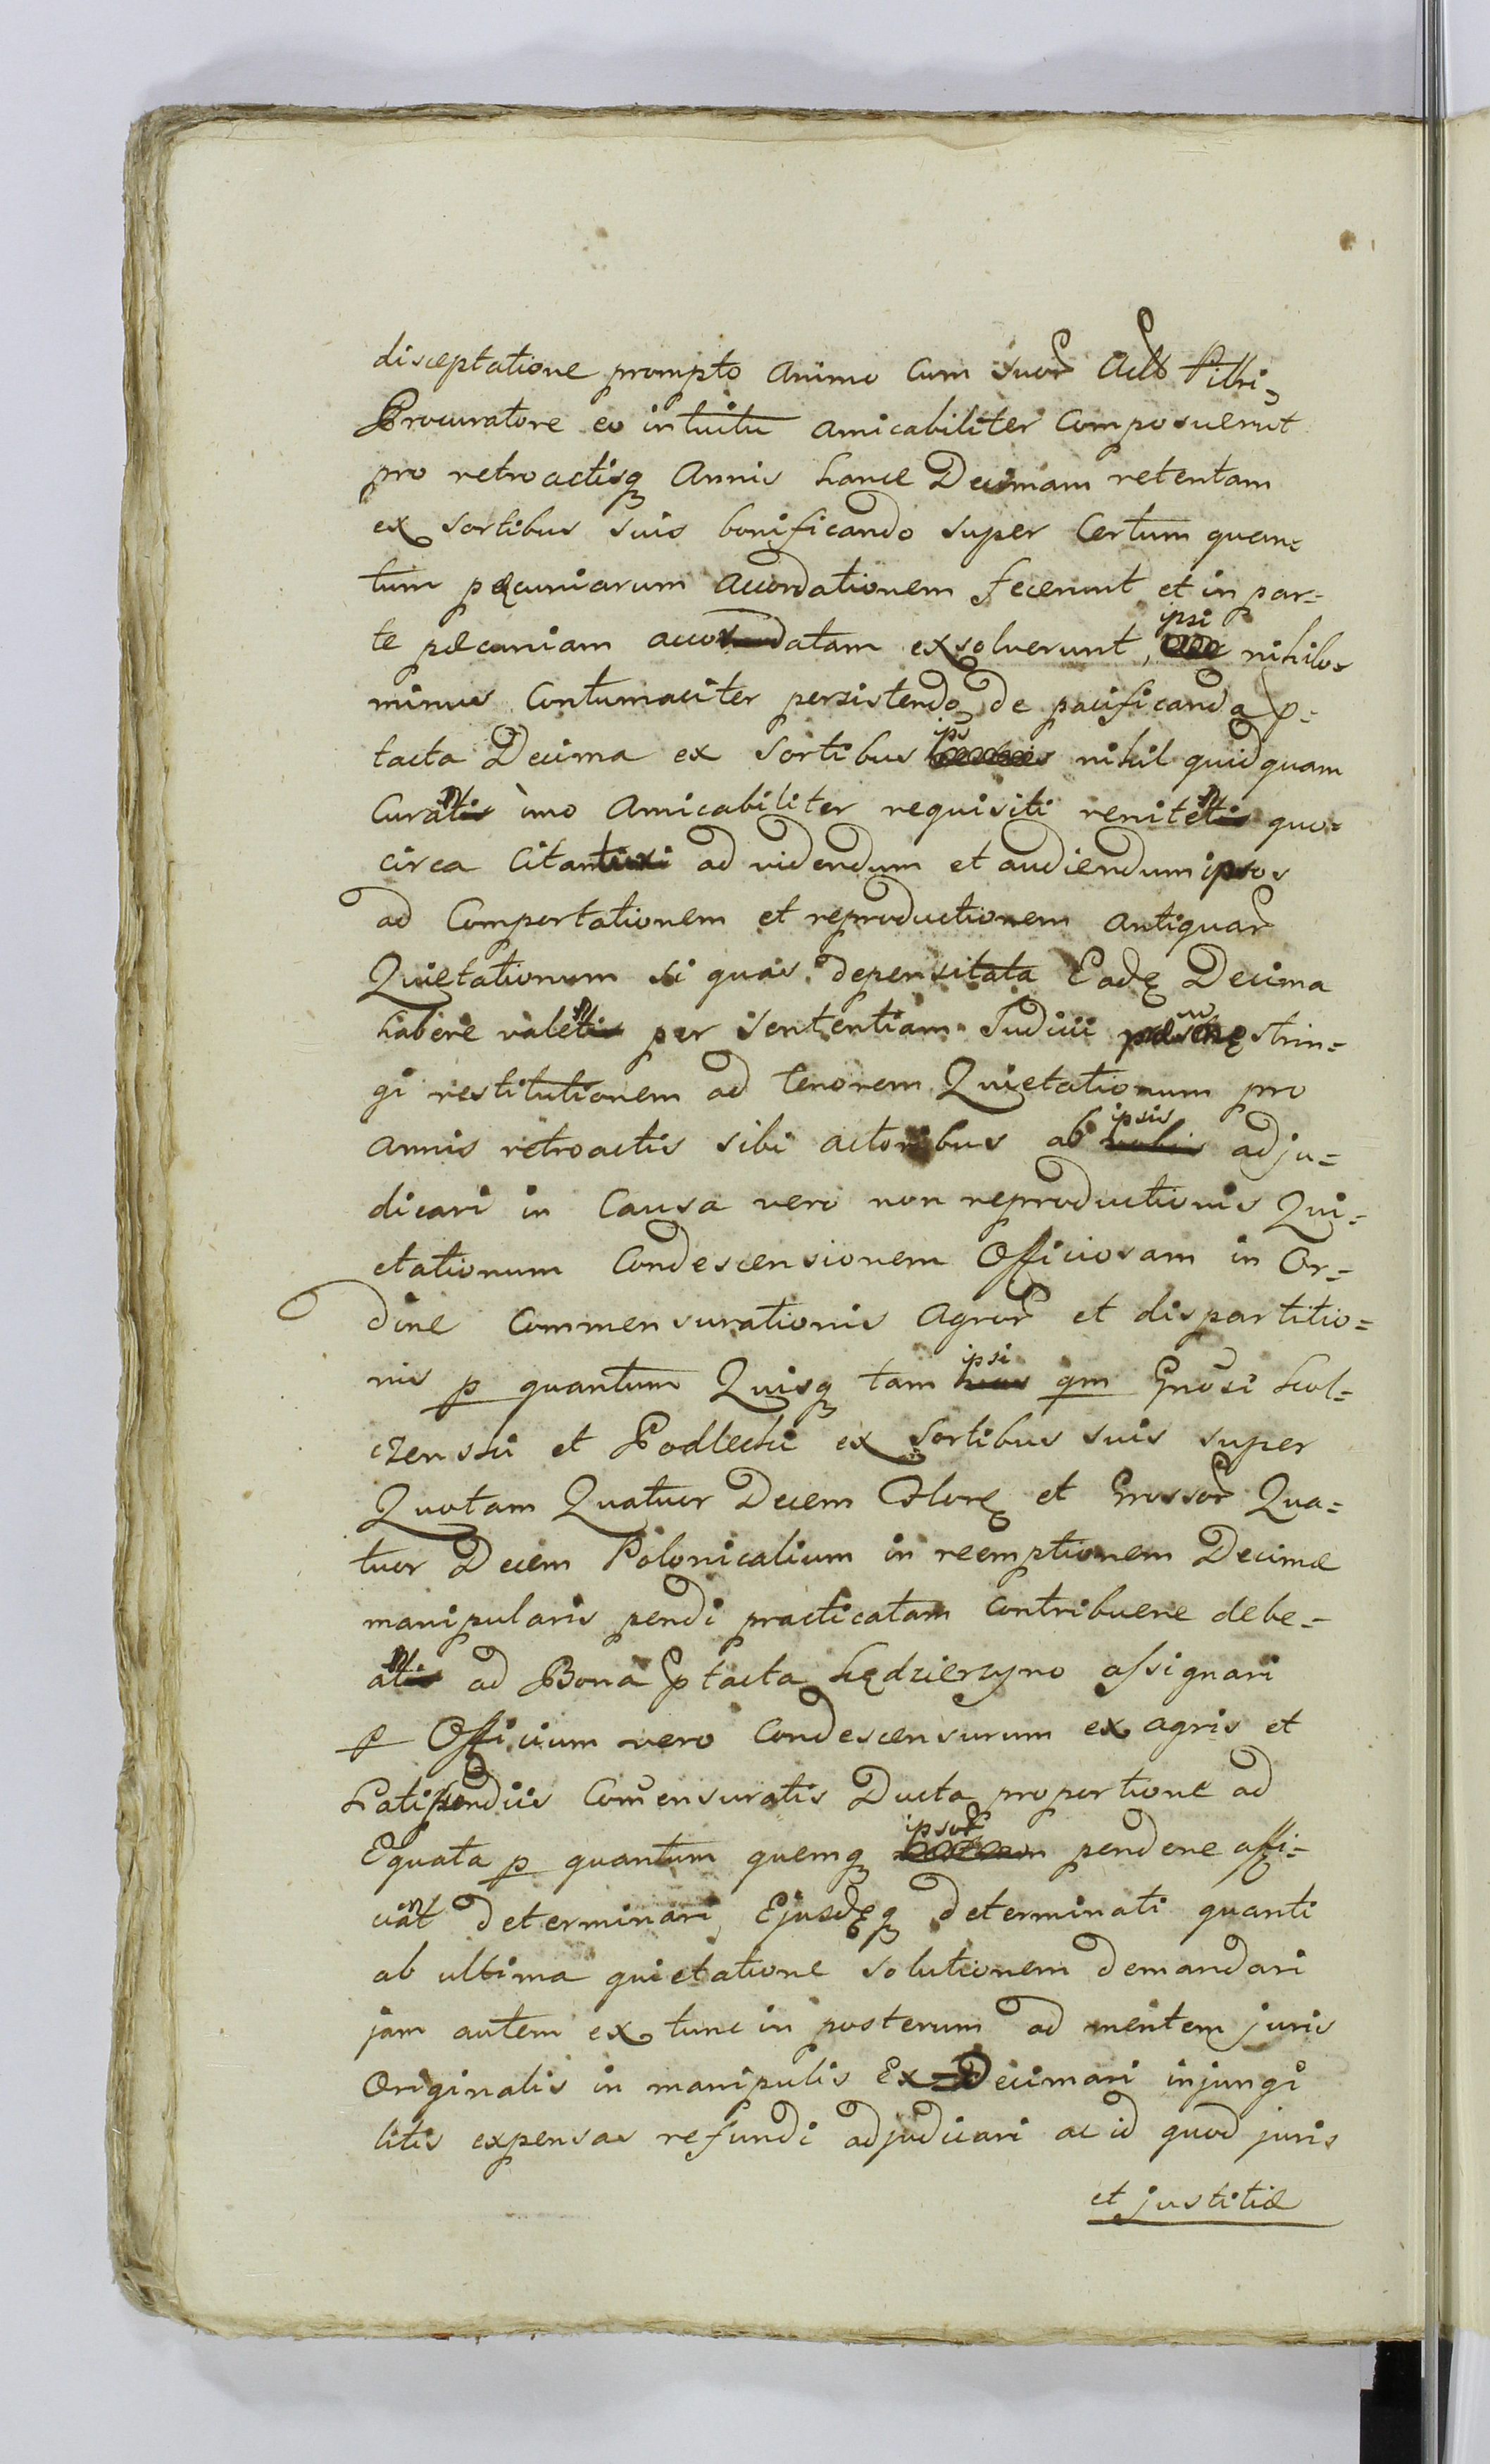 disceptatione prompto animo Cum suor Actor
Procuratore eo intuitu amicabiliter Composuerunt
pro retroactisq Annis hance Decimam retentam
ex sortibus suis bonificando super Certum quan=
tum pecuniarum accordationem fecerunt et in par=
te pecuniam accordatam exsolverunt, ipsi nihilo=
minus Contumaciter persistendo de pacificanda p=
tacta Decima ex Sortibus ips nihil quidquam
Curant imo Amicabiliter requisiti renitent quo=
circa Citantur ad videndum et audiendum ipsos
ad Comportationem et reproductionem antiquar
Quietationum si quas depensitata Eade Decima
habere valent per Sententiam Judicii strin=
gi restitutionem ad tenorem Quietationum pro
annis retroactis sibi actoribus ab ipsis adju=
dicari in Causa vero non reproductionis Qui=
etationum Condescensionem Officiosam in Or=
dine Commensurationis Agror et dispartitio=
nis p quantum Quisq tam ipsi qm Gnosi Hol=
czenski et Podlecki ex Sortibus suis super
Quotam Quatuor Decem Flore et Grossor Qua=
tuor Decem Polonicalium in reemptionem Decimæ
manipularis pendi practicatam contribuere debe=
ant ad Bona ptacta Kędzierzyno assignari
p Officium vero Condescensurum ex agris et
Latifundiis Comensuratis Ducta proportione ad
Equata p quantum quemq ipsor pendere affi=
ciant determinari, Ejusdeq determinati quanti
ab ultima quietatione solutionem demandari
jam autem ex tunc in posterum ad mentem juris
Originalis in manipulis Ex=Decimari injungi
litis expensas refundi adjudicari ac id quod juris
et justitiæ